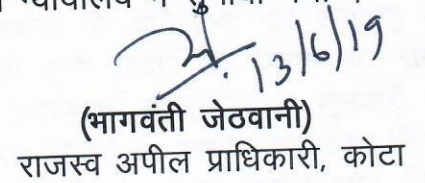 13/6/19
(भागवंती जेठवानी)
राजस्व अपील प्राधिकारी, कोटा